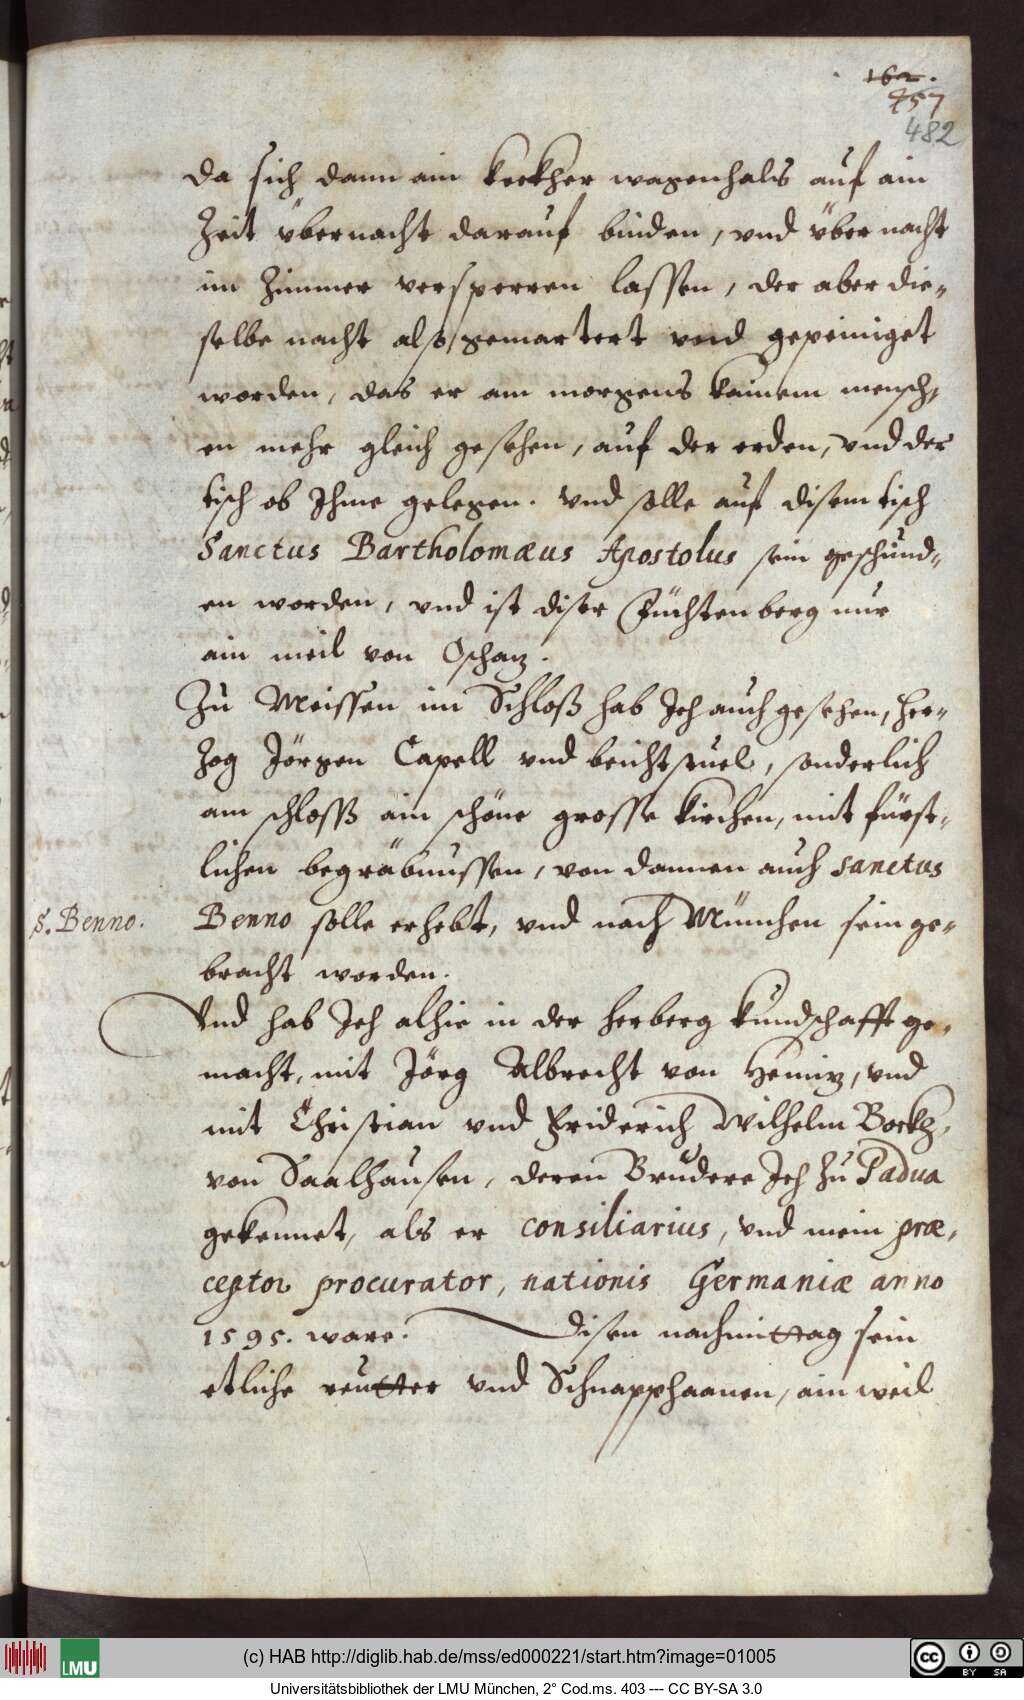 162.
457
482
da sich dann ain keckher wagenhals auf ain
Zeit übernacht darauf binden, vnd über nacht
im Zimmer versperren lassen, der aber die-
selbe nacht also gemartert vnd gepeiniget
worden, das er am morgens kainem mensch-
en mehr gleich gesehen, auf der erden, vnd der
tisch ob Ihme gelegen. vnd solle auf disem tisch
Sanctus Bartholomæus Apostolus sein geschund-
en worden, vnd ist diser Züchtenberg nur
ain meil von Oschaz.
Zu Meissen im Schloß hab Ich auch gesehen, Her-
zog Jörgen Capell vnd beichtstuel, sonderlich
am schloß ain schöne grosse kirchen, mit fürst-
lichen begräbnussen, von dannen auch sanctus
S. Benno.
Benno solle erhebt, vnd nach München sein ge-
bracht worden.
Vnd hab Ich alhie in der herberg kundschafft ge-
macht, mit Jörg Albrecht von Heiniz, vnd
mit Christian vnd Friderich Wilhelm Bockh,
von Saalhausen, deren Brudere Ich zu Padua
gekennet, als er consiliarius, vnd mein præ-
ceptor procurator, nationis Germaniæ anno
1595. ware. Disen nachmittag sein
etliche reutter vnd Schnapphaanen, ain weil
(c) HAB http://diglib.hab.de/mss/ed000221/start.htm?image=01005
LMU
CC BY SA
Universitätsbibliothek der LMU München, 2° Cod.ms. 403 --- CC BY-SA 3.0